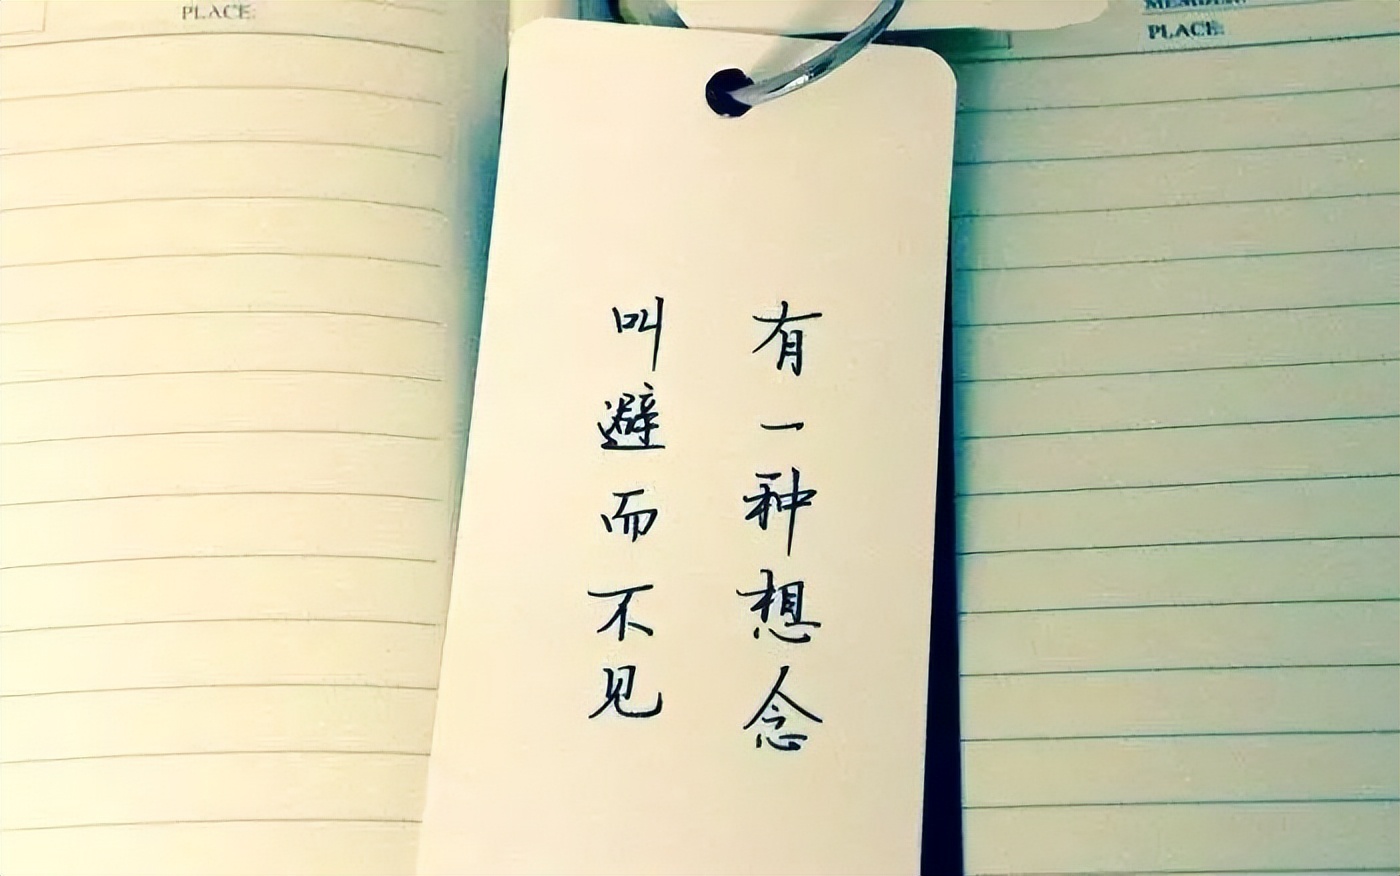 PLACE:
MEMBER:
PLACE:
有一种想念
叫避而不见